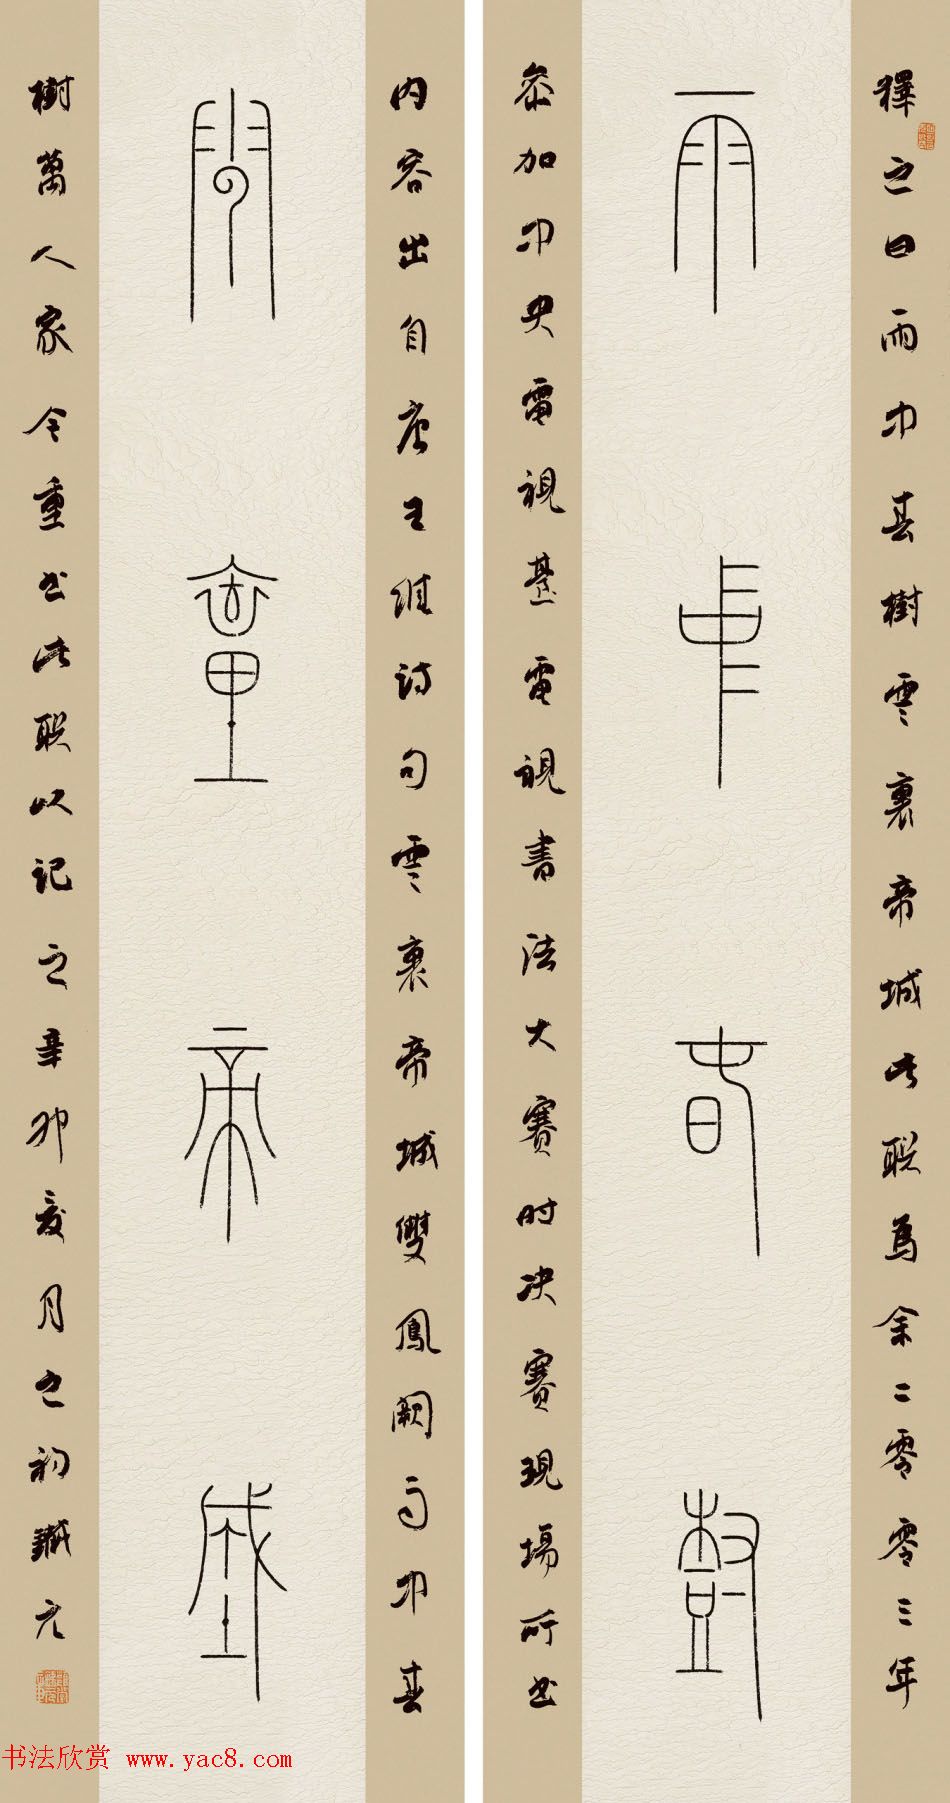 釋之曰雨中春樹雲裏帝城此联爲余二零零三年
雨中春樹
參加中央電視臺電視書法大賽时决賽現場所书
内容出自唐王维诗句雲裏帝城雙鳳闕雨中春
雲裏帝城
樹萬人家今重书此联以记之辛卯夏月之初鐵元
书法欣赏 www.yac8.com